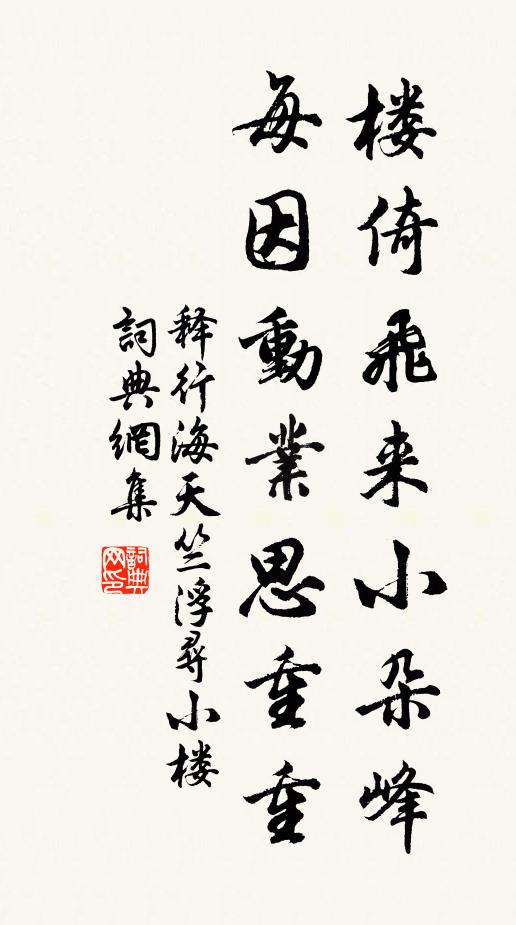 楼倚飛来小朵峰
每因動業思重重
释行海天竺浮尋小楼
詞典網集
詞典网印